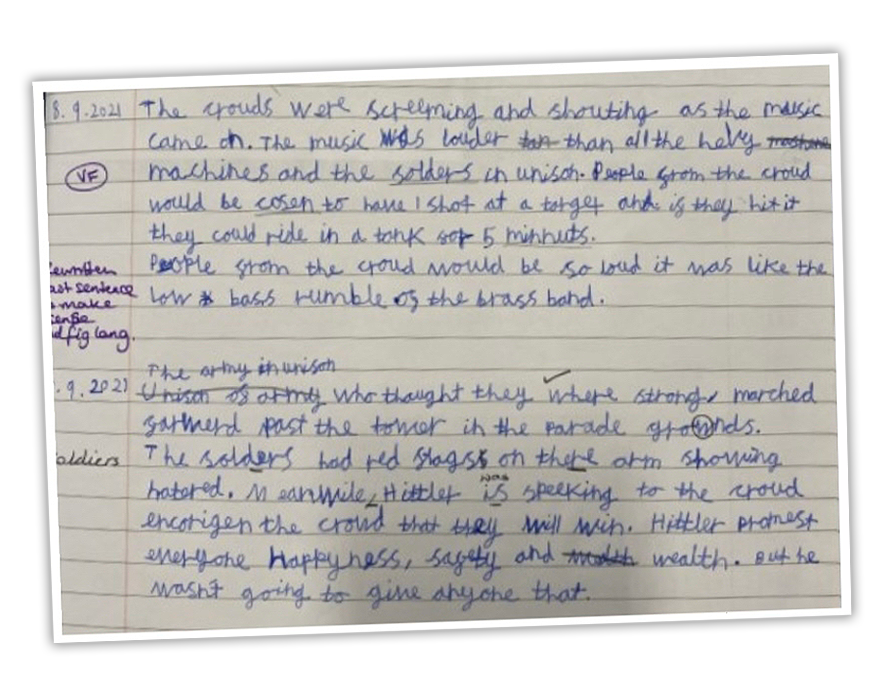 8.9.2021 The crouds were screeming and shouting as the music
came on. The music was louder tan than all the hevy
VF machines and the solders in unison. People from the croud
would be cosen to have 1 shot at a target and if they hit it
they could ride in a tank for 5 minnuts.
People from the croud would be so loud it was like the
low bass rumble of the brass band.
ewritten
ast sentence
make
ense
d fig lang.
The army in unison
.9.2021 Unison of army who thought they where strong, marched
forwerd past the tower in the parade grownds.
oldiers The solders had red flags on there arm showing
was
hatered. Meanwile, Hittler is speeking to the croud
encorigen the croud that they will win. Hittler promest
everyone Happyness, safety and wealth. But he
wasn't going to give anyone that.